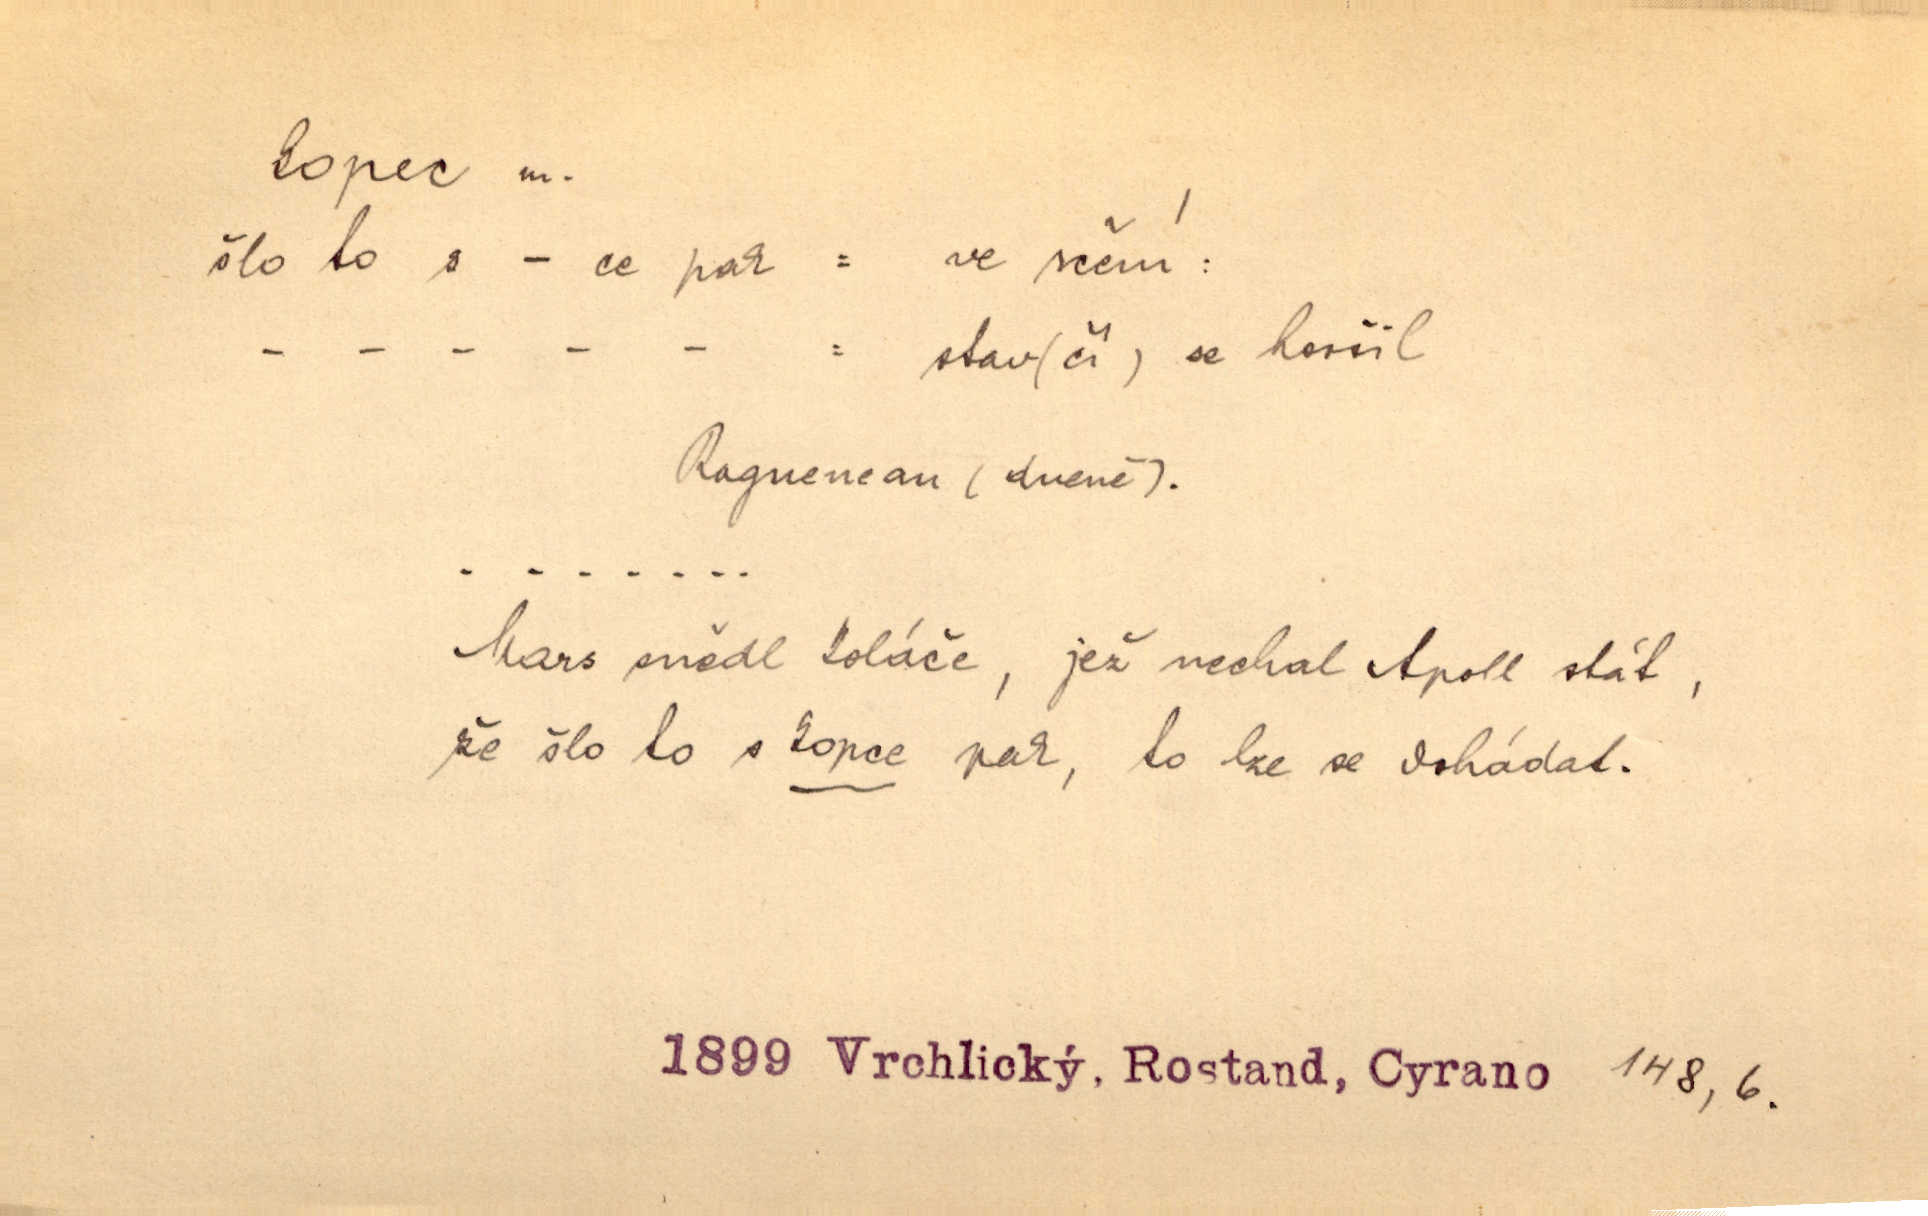 kopec m.
šlo to s - ce pak = ve rčení:
- - - - - = stav (čí) se horšil
Ragueneau (dueně).
. . . . . . . .
Mars snědl koláče, jež nechal Apoll stát,
že šlo to s kopce pak, to lze se dohádat.
1899 Vrchlický, Rostand, Cyrano 148, 6.